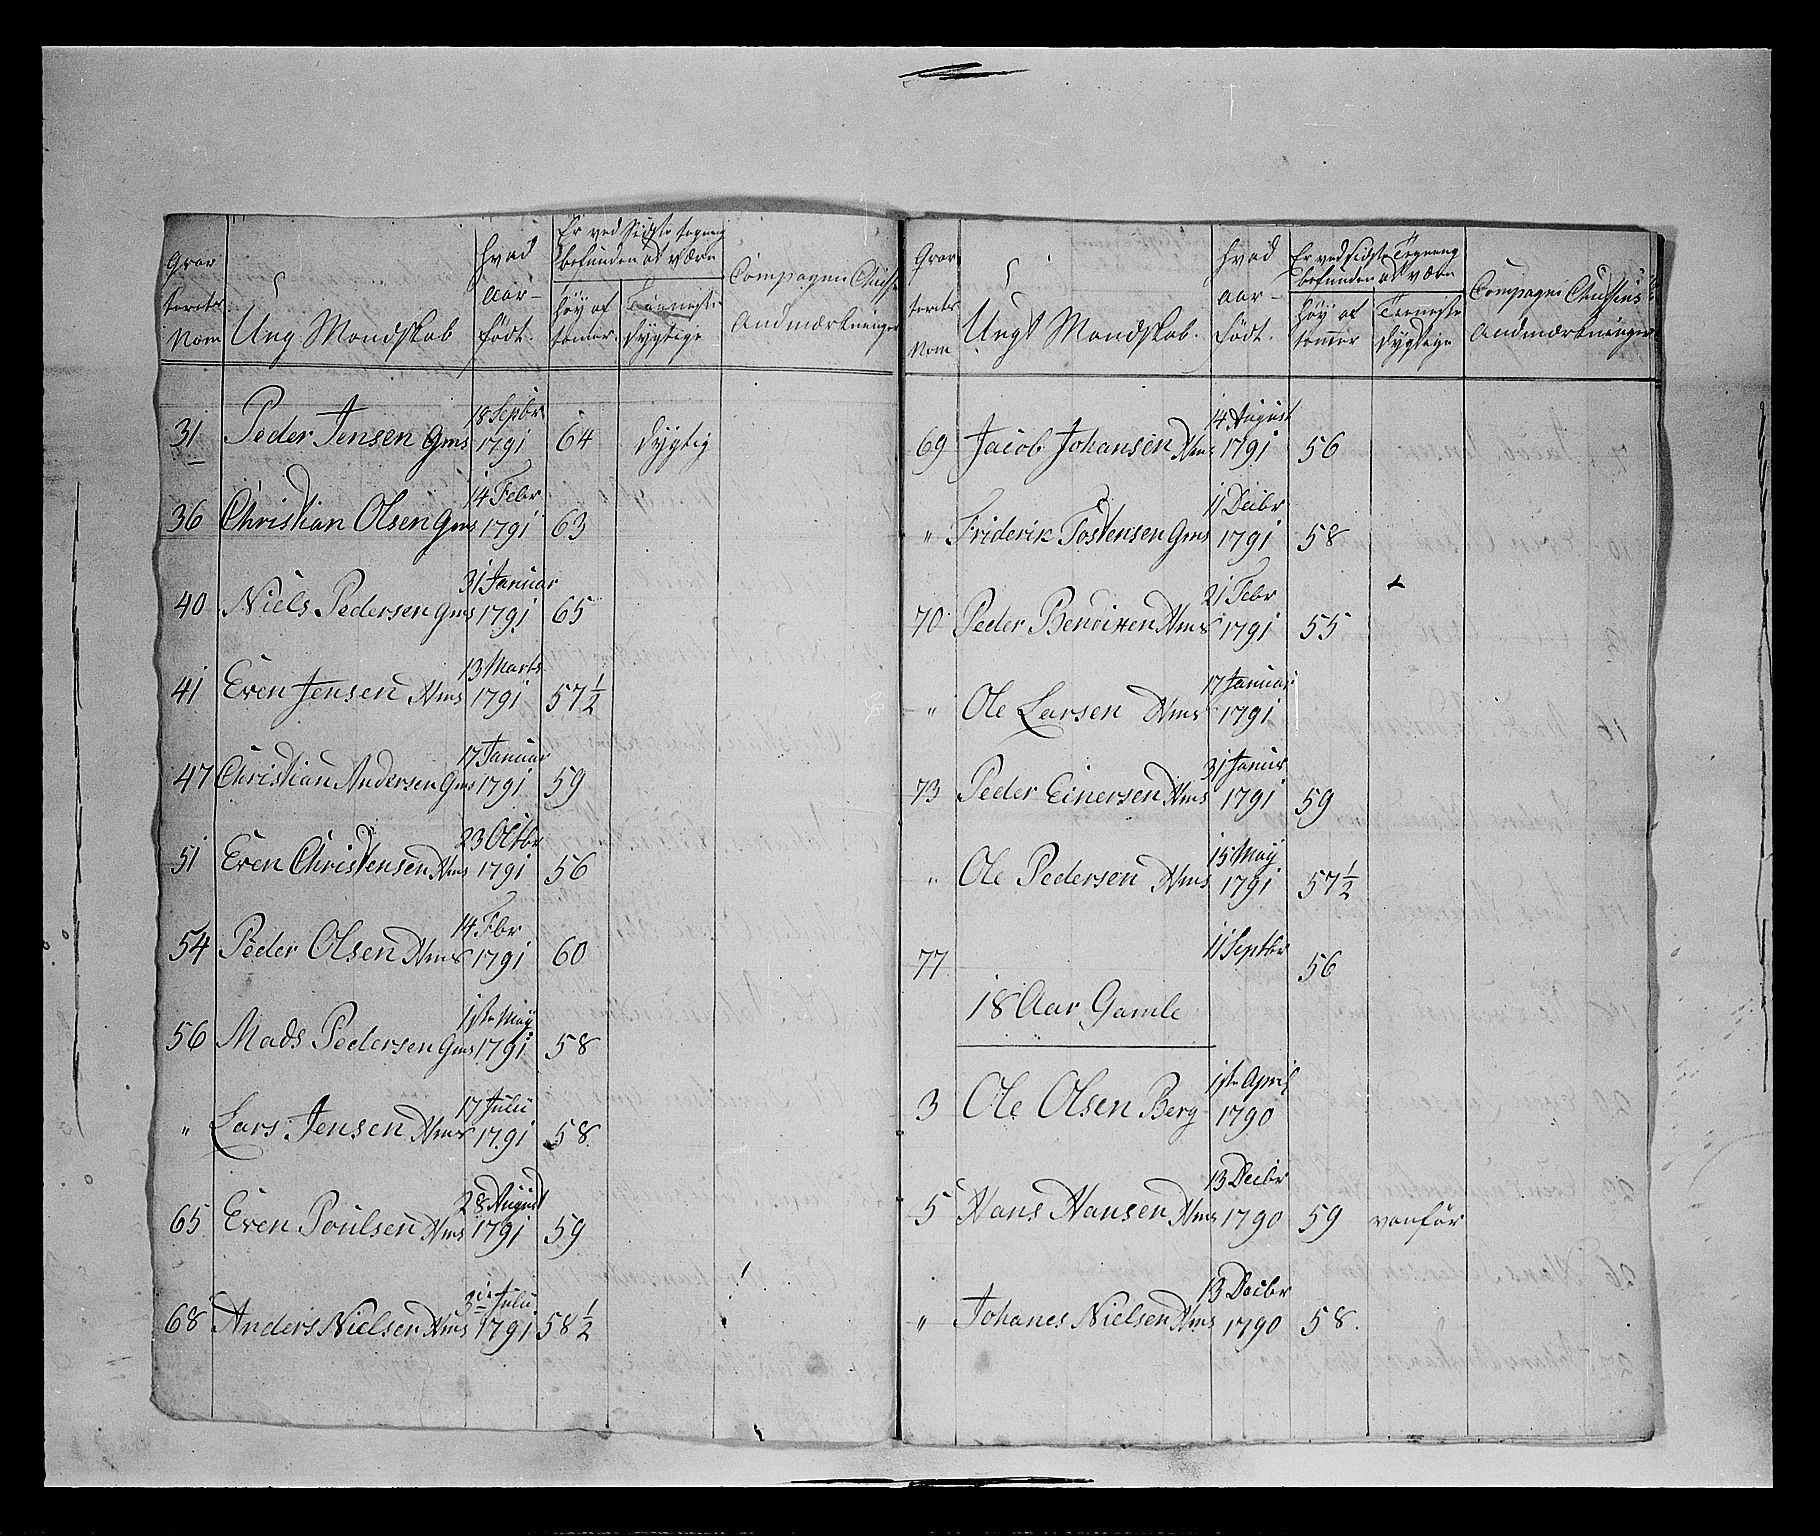 Qvar
teerets
Nom
Ung Mandskab
hvad
aar
født.
Er ved sidste tegning
befunden at være
høy af
tomer.
Tienneste
dygtige
Compagni Cheffe
Andmærkninger
31 Peder Jensen Gms 18 Sepbr 1791 64 dygtig
36 Christian Olsen Gms 14 Febr 1791 63
40 Niels Pedersen Gms 31 Januar 1791 65
41 Even Jensen Hms 13 Marts 1791 57 1/2
47 Christian Andersen Gms 17 Januar 1791 59
51 Even Christensen Hms 23 Octbr 1791 56
54 Peder Olsen Hms 14 Fbr 1791 60
56 Mads Pedersen Gms 1ste May 1791 58
" Lars Jensen Hms 17 Julii 1791 58
65 Even Poulsen Hms 28 August 1791 59
68 Anders Nielsen Hms 3 Julii 1791 58 1/2
Qvar
teerets
Nom
Ungt Mandskab.
hvad
aar
født.
Er ved sidste Tegning
befunden at være
høy af
tommer
Tienneste
dygtige
Compagni Cheffens
Andmærkninger
69 Jacob Johansen Hms 14 August 1791 56
" Friderik Tostensen Gms 11 Decbr 1791 58
70 Peder Bendixen Hms 21 Febr 1791 55
" Ole Larsen Hms 17 Januar 1791
73 Peder Einersen Hms 31 Janur 1791 59
" Ole Pedersen Hms 15 May 1791 57 1/2
77 11 Septbr 56
18 Aar Gamle
3 Ole Olsen Berg 1ste April 1790
5 Hans Hansen Hms 13 Decbr 1790 59 vanför
" Johanes Nielsen Hms 13 Decbr 1790 58.